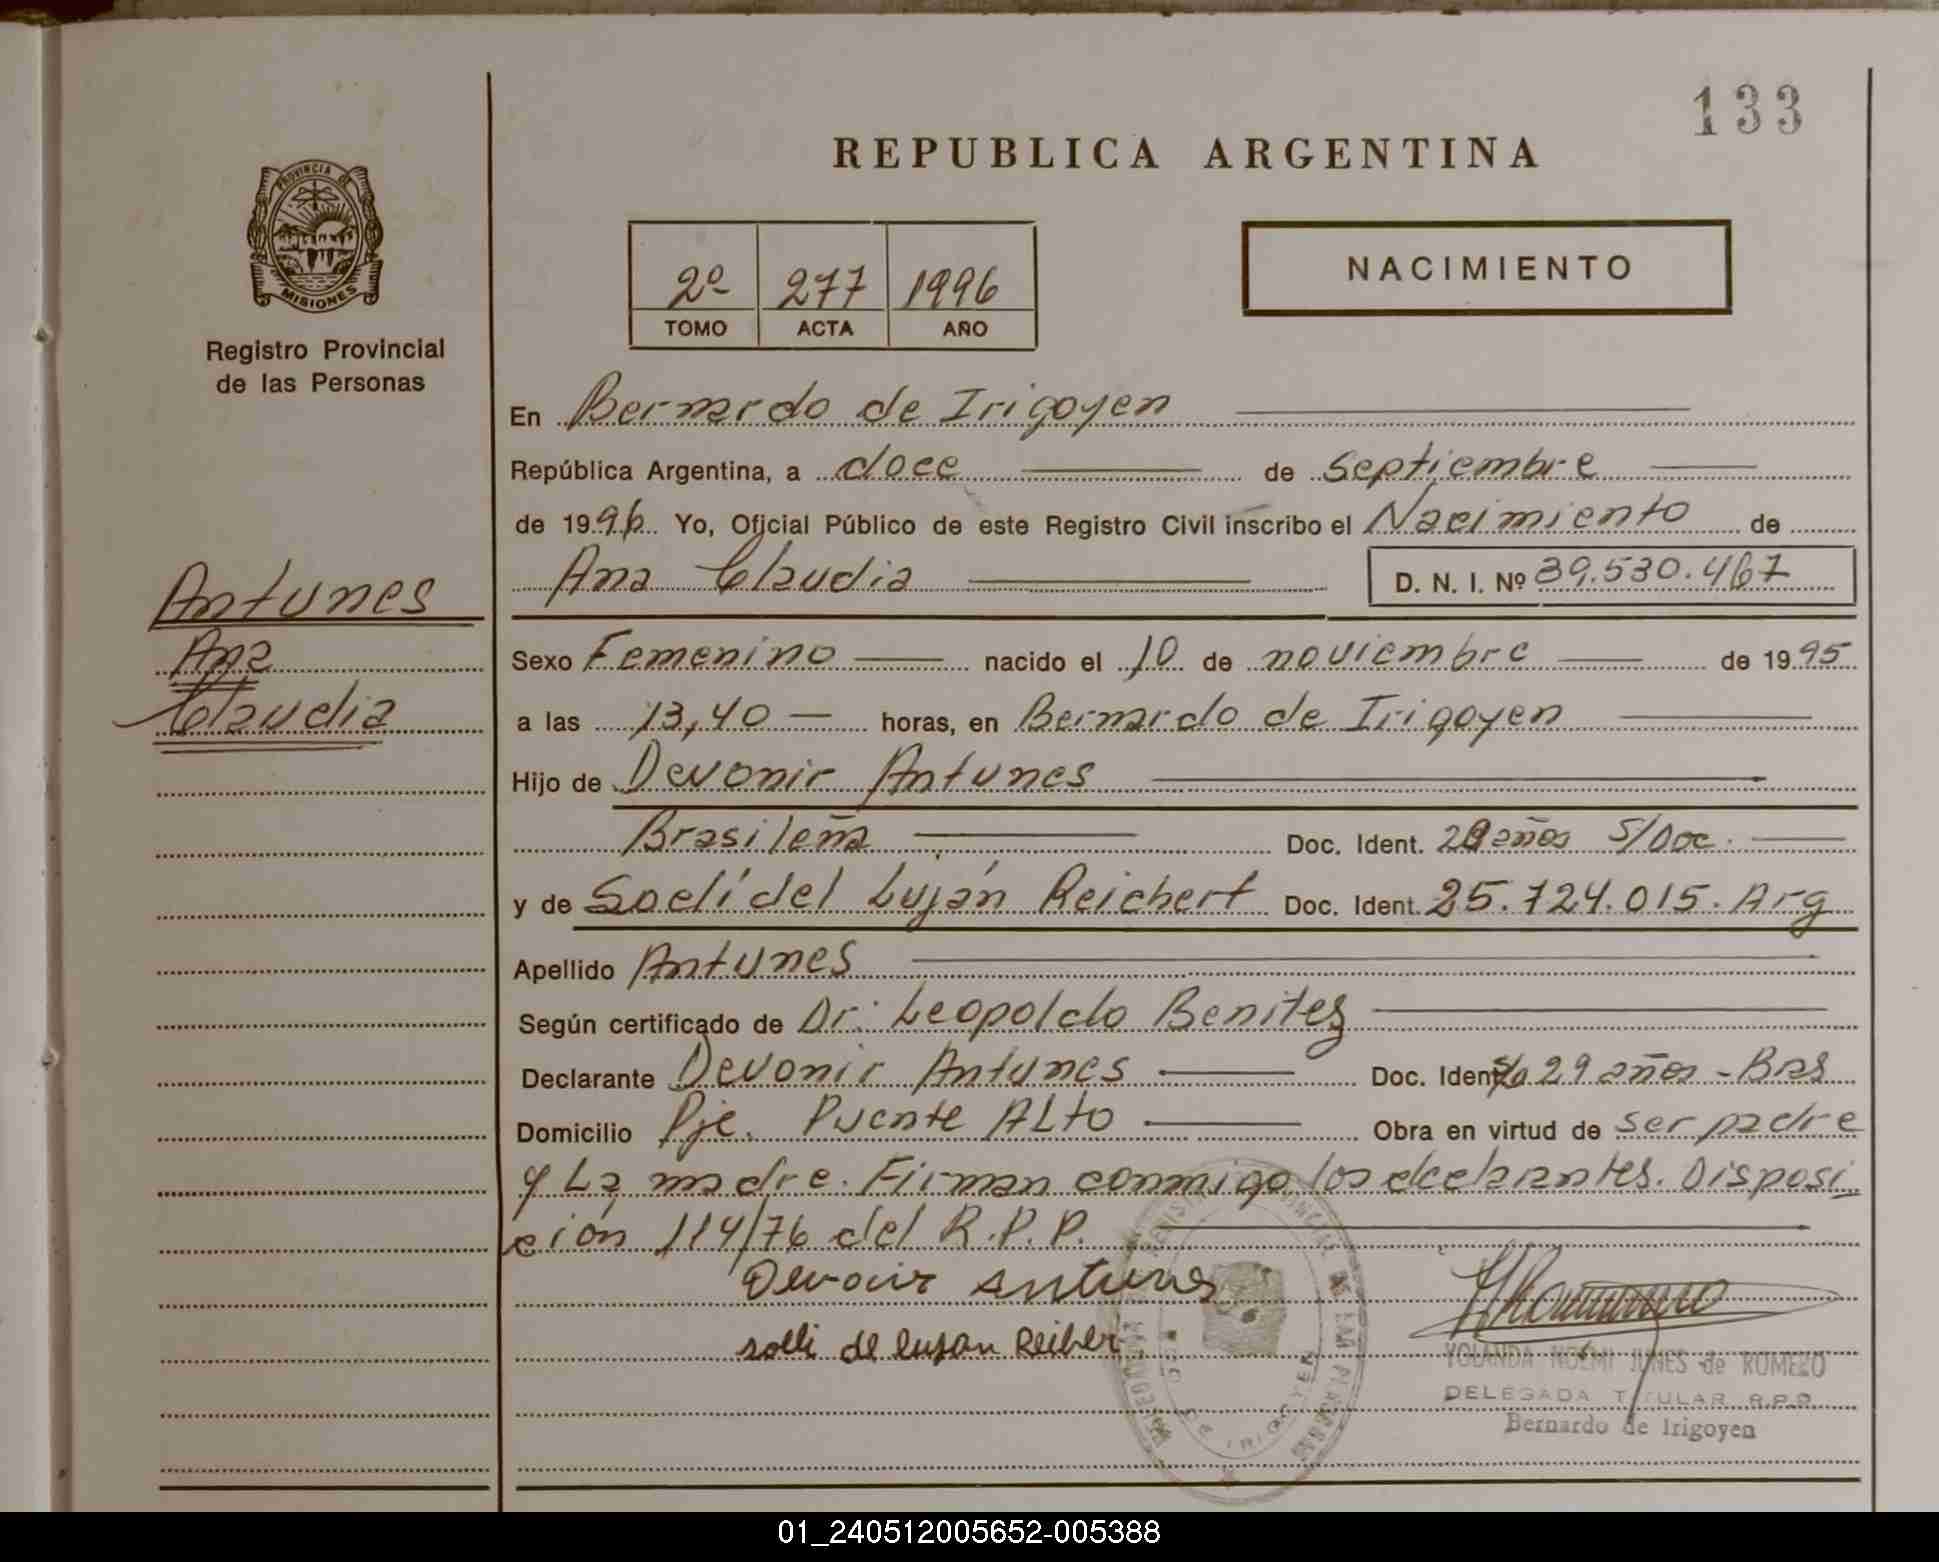 133
REPUBLICA ARGENTINA
PROVINCIA DE
MISIONES
Registro Provincial
de las Personas
2º 277 1996
TOMO ACTA AÑO
NACIMIENTO
En Bernardo de Irigoyen
República Argentina, a doce de septiembre
de 1996 Yo, Oficial Público de este Registro Civil inscribo el Nacimiento de
Ana Claudia D. N. I. Nº 39.530.467
Antunes
Ana
Claudia
Sexo Femenino nacido el 10 de noviembre de 1995
a las 13,40 horas, en Bernardo de Irigoyen
Hijo de Devonir Antunes
Brasileña Doc. Ident. años S/Doc.
y de Soelí del Luján Reichert Doc. Ident. 25.724.015. Arg
Apellido Antunes
Según certificado de Dr. Leopoldo Benitez
Declarante Devonir Antunes Doc. Ident. 29 años - Bras
Domicilio Pje. Puente Alto Obra en virtud de ser padre
y La madre. Firman conmigo los declarantes. Disposi
ción 114/76 del R.P.P.
Devonir Antunes
solli de lujan Reiher
YOLANDA NOEMI JUNES de ROMERO
DELEGADA TITULAR R.P.P.
Bernardo de Irigoyen
01_240512005652-005388